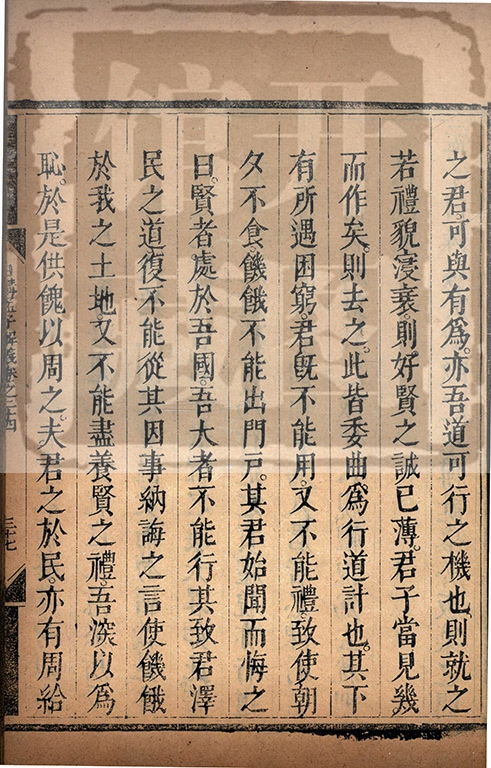 之君。可與有爲。亦吾道可行之機也。則就之
若禮貌寖衰。則好賢之誠已薄。君子當見幾
而作矣。則去之。此皆委曲。爲行道計也。其下
有所遇困窮。君旣不能用。又不能禮。致使朝
夕不食。饑餓不能出門戸。其君始聞而悔之
曰。賢者處於吾國。吾大者不能行其致君澤
民之道。復不能從其因事納誨之言。使饑餓
於我之土地。又不能盡養賢之禮。吾深以爲
恥。於是供餽以周之。夫君之於民。亦有周給
三十七